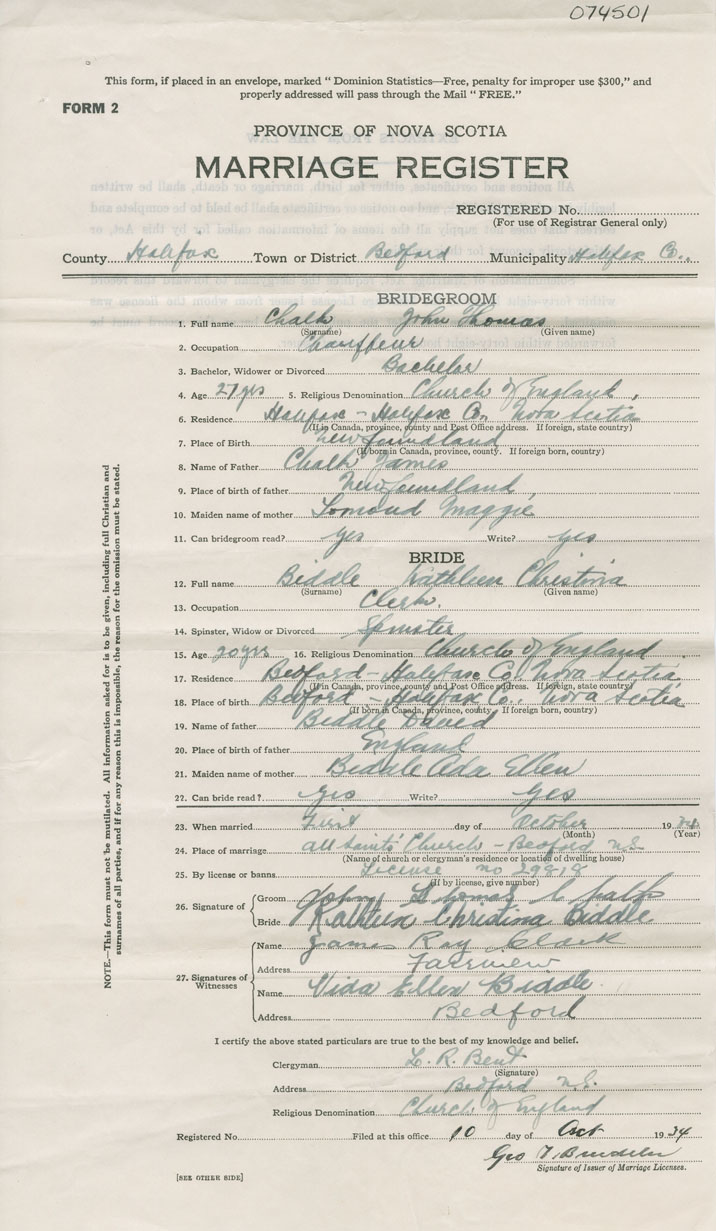 074501
This form, if placed in an envelope, marked " Dominion Statistics—Free, penalty for improper use $300," and
properly addressed will pass through the Mail " FREE."
FORM 2
PROVINCE OF NOVA SCOTIA
MARRIAGE REGISTER
REGISTERED No.
(For use of Registrar General only)
County Halifax Town or District Bedford Municipality Halifax Co.
BRIDEGROOM
1. Full name Chalk John Thomas
(Surname) (Given name)
2. Occupation Chauffeur
3. Bachelor, Widower or Divorced Bachelor
4. Age 27 yrs 5. Religious Denomination Church of England
6. Residence Halifax - Halifax Co. Nova Scotia
(If in Canada, province, county and Post Office address. If foreign, state country)
7. Place of Birth Newfoundland
(If born in Canada, province, county. If foreign born, country)
8. Name of Father Chalk James
9. Place of birth of father Newfoundland
10. Maiden name of mother Lomond Maggie
11. Can bridegroom read? yes Write? yes
BRIDE
12. Full name Biddle Kathleen Christina
(Surname) (Given name)
13. Occupation Clerk.
14. Spinster, Widow or Divorced Spinster
15. Age 20 yrs 16. Religious Denomination Church of England
17. Residence Bedford - Halifax Co. Nova Scotia
(If in Canada, province, county and Post Office address. If foreign, state country)
18. Place of birth Bedford - Halifax Co. Nova Scotia
(If born in Canada, province, county. If foreign born, country)
19. Name of father Biddle David
20. Place of birth of father England
21. Maiden name of mother Biddle Ada Ellen
22. Can bride read? yes Write? Yes
23. When married First day of October 1934
(Month) (Year)
24. Place of marriage All Saints' Church - Bedford N.S.
(Name of church or clergyman's residence or location of dwelling house)
25. By license or banns License no 29818
(If by license, give number)
26. Signature of Groom John Thomas Chalk
Bride Kathleen Christina Biddle
27. Signatures of Witnesses
Name James Ray Clark
Address Fairview
Name Vida Ellen Biddle
Address Bedford
I certify the above stated particulars are true to the best of my knowledge and belief.
Clergyman L. R. Bent
(Signature)
Address Bedford N.S.
Religious Denomination Church of England
Registered No. Filed at this office 10 day of Oct 1934
Geo
Signature of Issuer of Marriage Licenses.
[SEE OTHER SIDE]
NOTE.—This form must not be mutilated. All information asked for is to be given, including full Christian and
surnames of all parties, and if for any reason this is impossible, the reason for the omission must be stated.